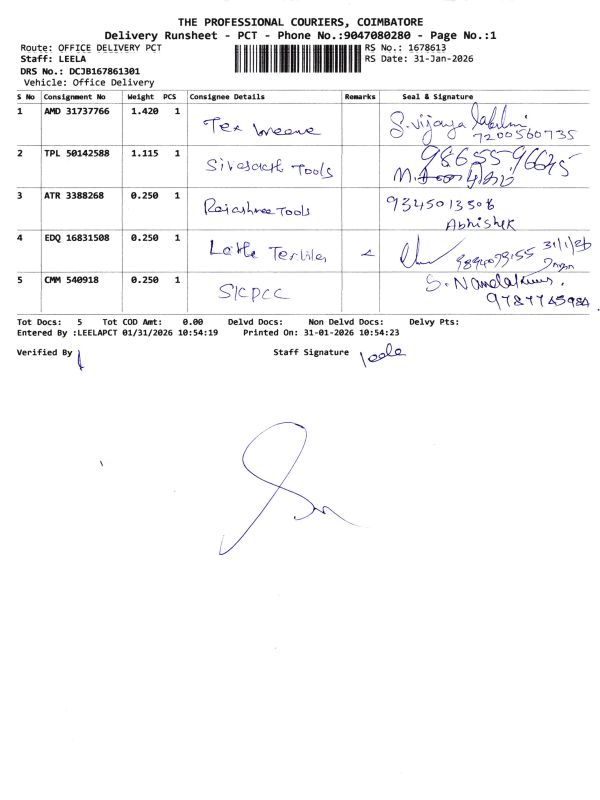 THE PROFESSIONAL COURIERS, COIMBATORE
Delivery Runsheet - PCT - Phone No.:9047080280 - Page No.:1
Route: OFFICE DELIVERY PCT RS No.: 1678613
Staff: LEELA RS Date: 31-Jan-2026
DRS No.: DCJB167861301
Vehicle: Office Delivery
S No Consignment No Weight PCS Consignee Details Remarks Seal & Signature
1 AMD 31737766 1.420 1 Tex weave S. vijaya lakshmi
7200560735
2 TPL 50142588 1.115 1 Tools 9865596675
3 ATR 3388268 0.250 1 Rajashree Tools 9345013508
Abhishek
4 EDQ 16831508 0.250 1 9894079155 31/1/26
5 CMM 540918 0.250 1 SICPCC S. Nandakumar.
9787765984
Tot Docs: 5 Tot COD Amt: 0.00 Delvd Docs: Non Delvd Docs: Delvy Pts:
Entered By :LEELAPCT 01/31/2026 10:54:19 Printed On: 31-01-2026 10:54:23
Verified By Staff Signature leela